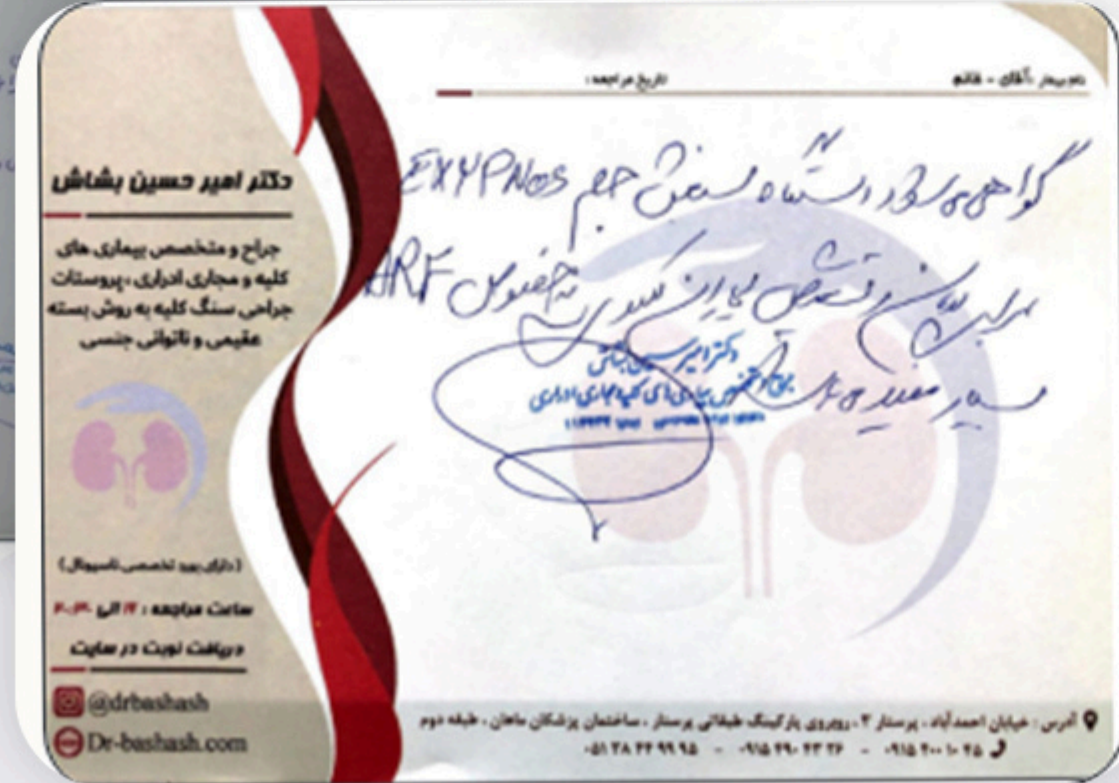 نام بیمار : آقای - خانم
تاریخ مراجعه :
گواهی می شود دستگاه سنجش حجم EXYPNOS
برای و تشخیص بیماران کلیوی به خصوص ARF
بسیار مفید می باشد
دکتر امیرحسین بشاش
جراح و متخصص بیماری های کلیه و مجاری ادراری
دکتر امیر حسین بشاش
جراح و متخصص بیماری های
کلیه و مجاری ادراری ، پروستات
جراحی سنگ کلیه به روش بسته
عقیمی و ناتوانی جنسی
(دارای بورد تخصصی ناسیونال)
ساعت مراجعه : ۱۷ الی ۲۰:۳۰
دریافت نوبت در سایت
@drbashash
Dr-bashash.com
آدرس : خیابان احمدآباد ، پرستار ۲ ، روبروی پارکینگ طبقاتی پرستار ، ساختمان پزشکان ماهان ، طبقه دوم
۰۹۱۵ ۴۰۰ ۱۰ ۴۵ - ۰۹۱۵ ۴۹۰ ۴۳ ۲۶ - ۰۵۱ ۳۸ ۴۴ ۹۹ ۹۵